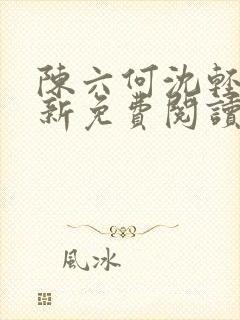 陳六何沈輕
新免費閱讀
風冰